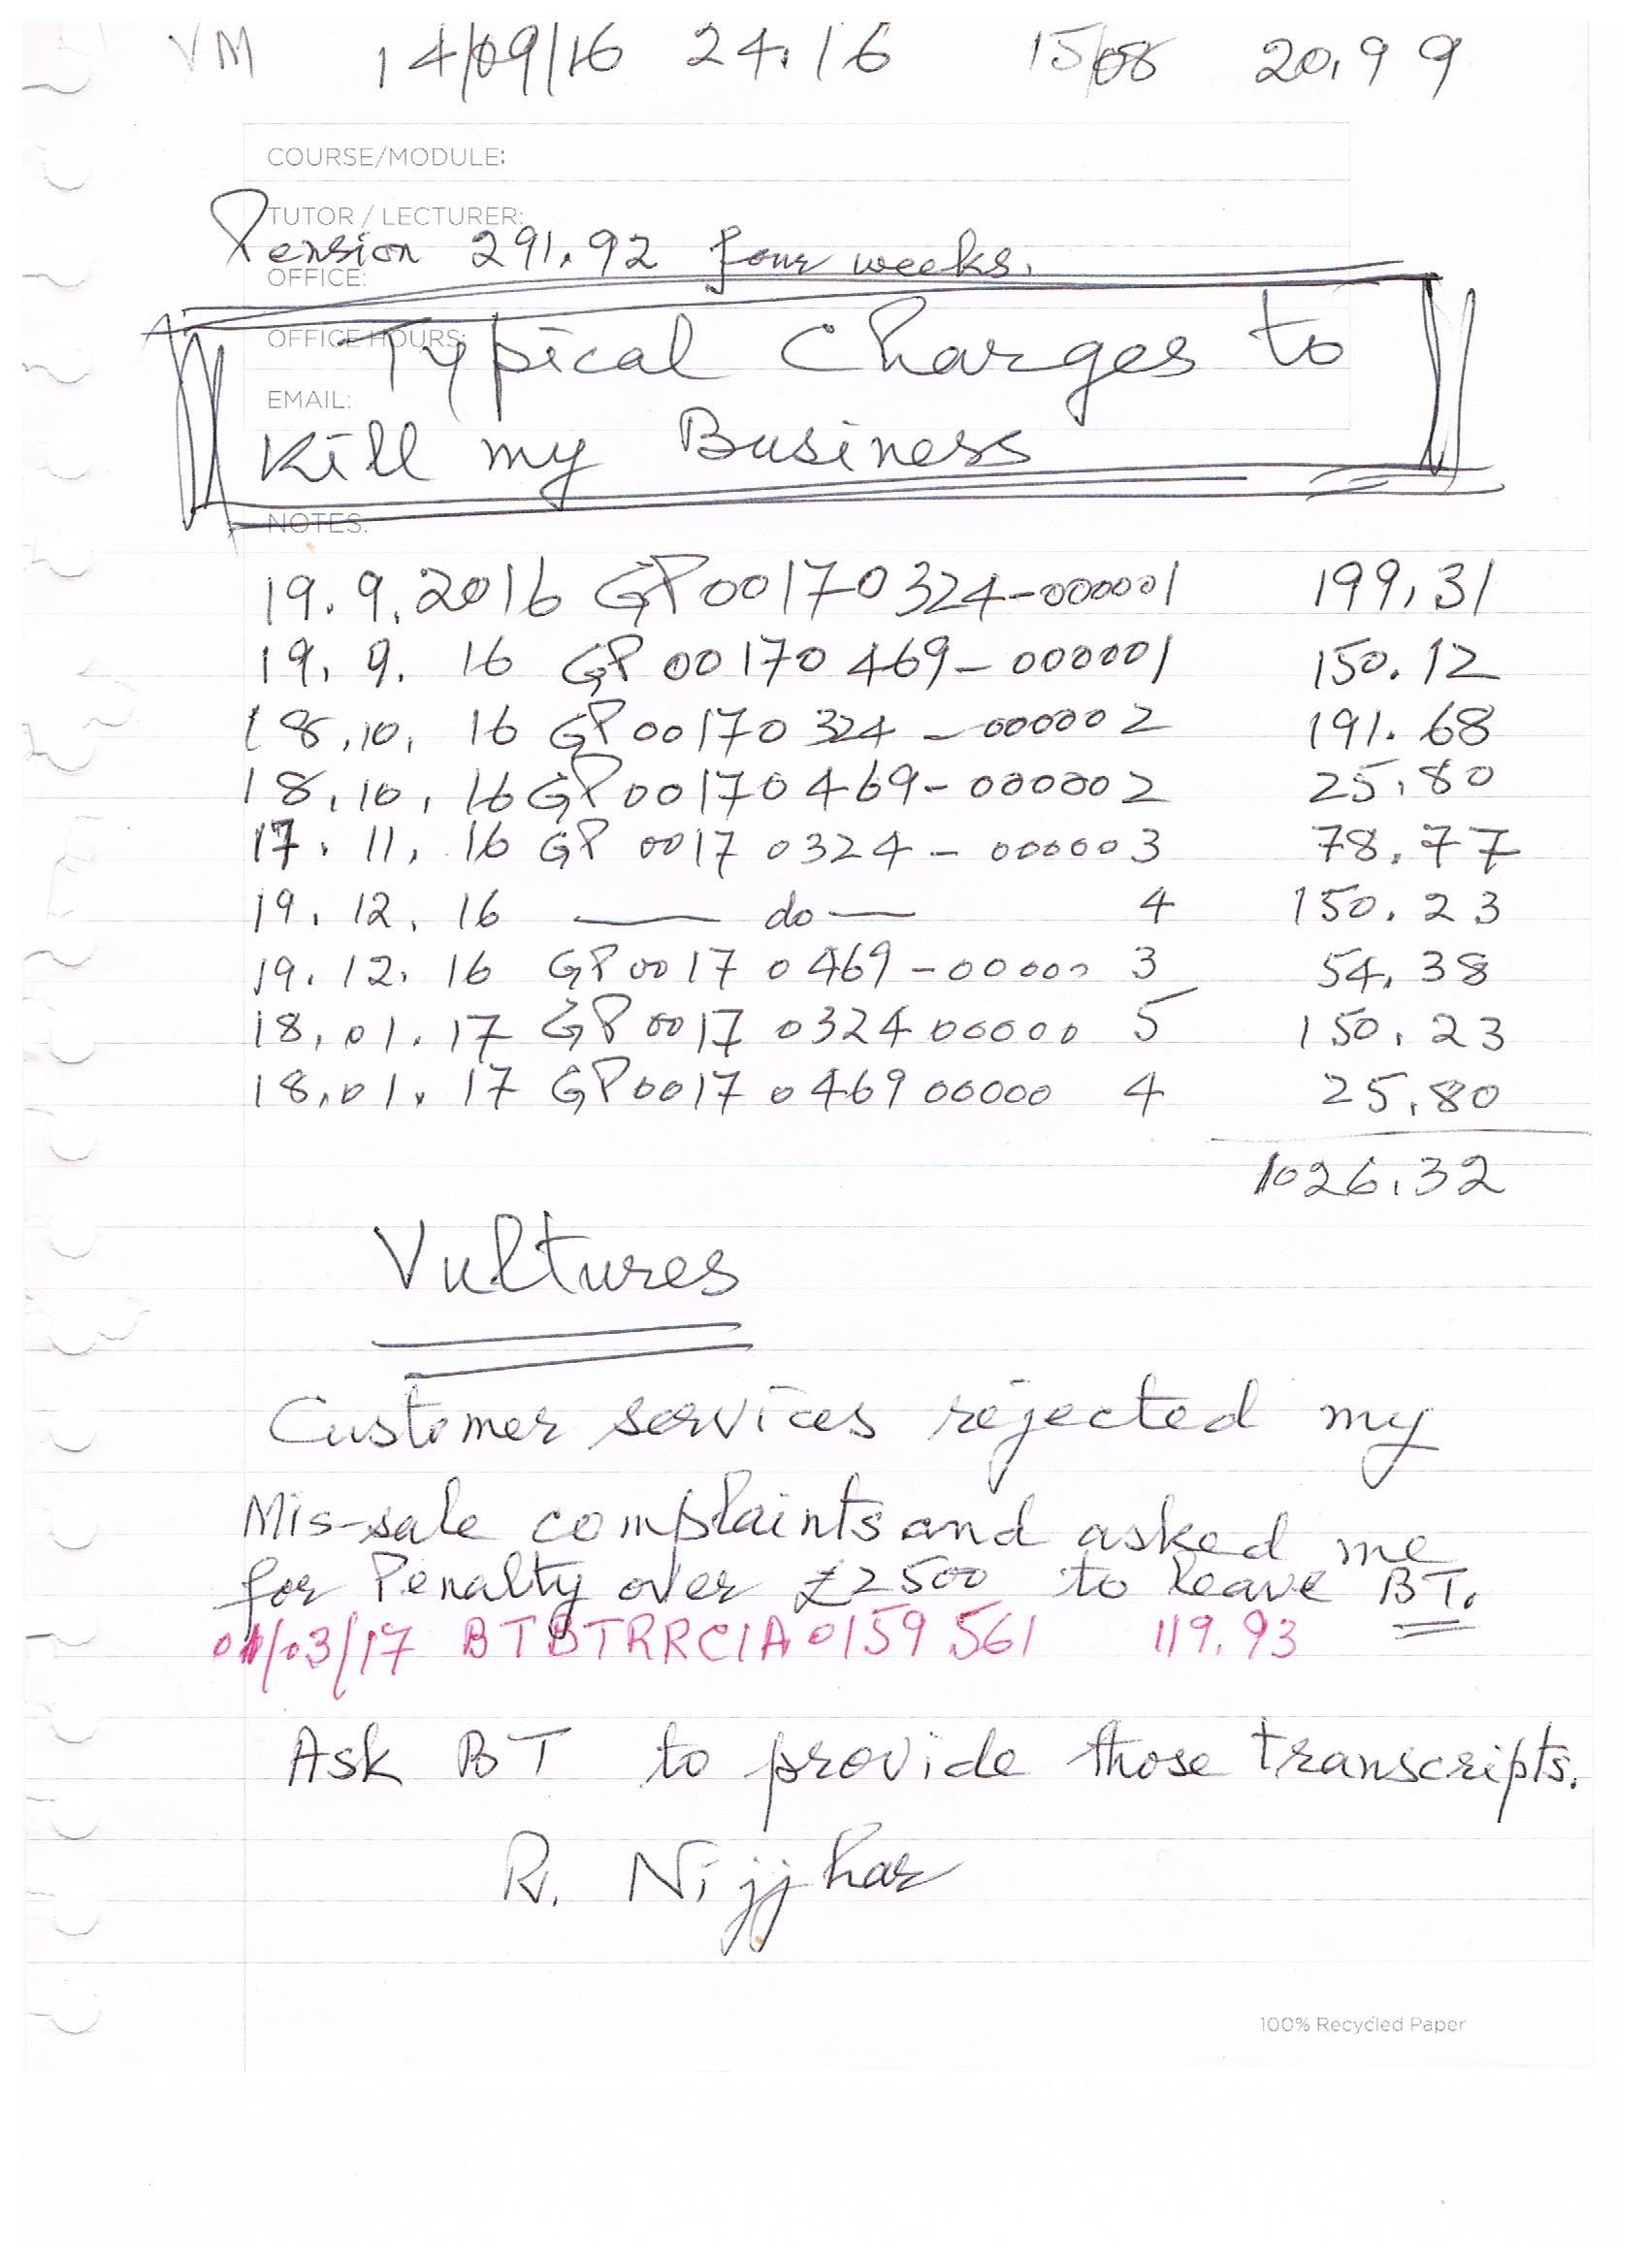 VM 14/09/16 24.16 15/08 20.99
COURSE/MODULE:
TUTOR / LECTURER:
Pension 291.92 four weeks.
OFFICE:
OFFICE HOURS:
Typical Charges to
EMAIL:
Kill my Business
NOTES:
19.9.2016 GP00170324-000001 199.31
19.9.16 GP00170469-000001 150.12
18.10.16 GP00170324-000002 191.68
18.10.16 GP00170469-000002 25.80
17.11.16 GP00170324-000003 78.77
19.12.16 — do — 4 150.23
19.12.16 GP00170469-000003 54.38
18.01.17 GP00170324000005 150.23
18.01.17 GP00170469000004 25.80
1026.32
Vultures
Customer services rejected my
Mis-sale complaints and asked me
for Penalty over £2500 to leave BT.
01/03/17 BTBTRRC1A0159561 119.93
Ask BT to provide those transcripts.
R. Nijjhar
100% Recycled Paper